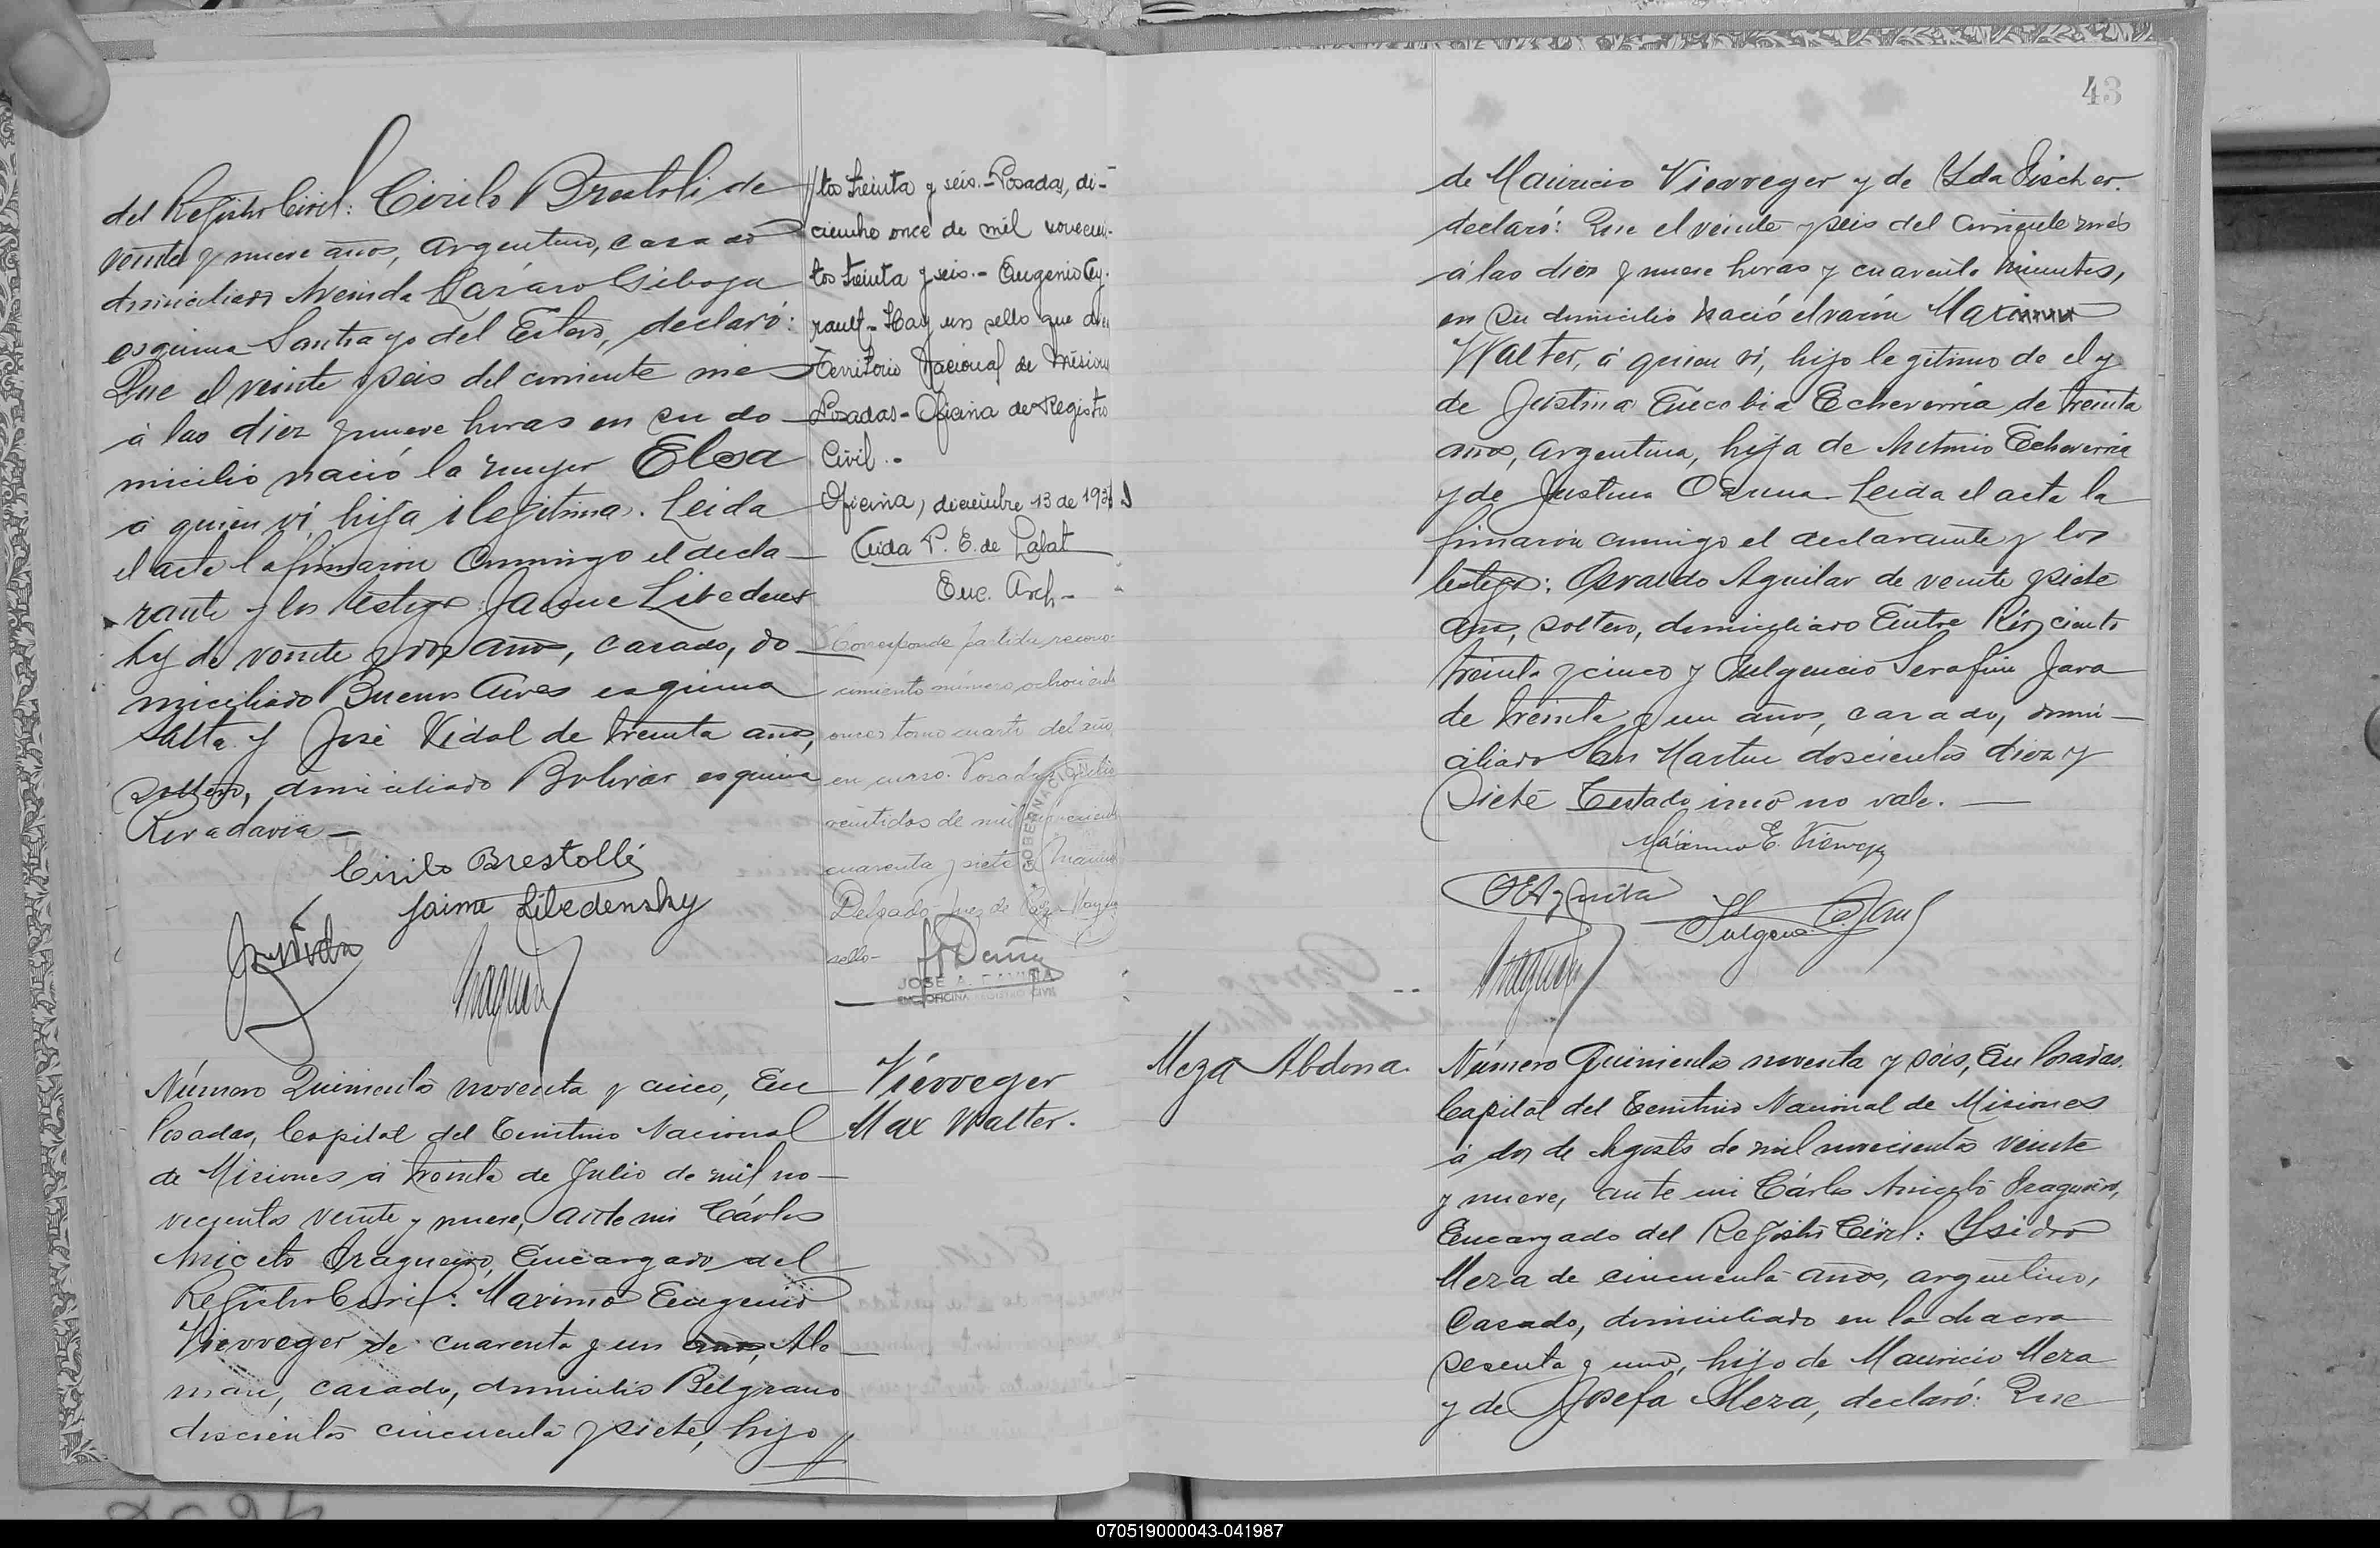 del Registro Civil: Cirilo Brestoli de
veinte y nueve años, argentino, casado
domiciliado Avenida Lázaro Giboja
esquina Santiago del Estero, declaró:
Que el veinte y seis del corriente mes
á las diez y nueve horas en su do
micilio nació la mujer Elsa
á quien ví, hija ilegítima. Leida
el acta la firmaron conmigo el decla
rante y los testigos: Jaime Libedens
ky de veinte y dos años, casado, do
miciliado Buenos Aires esquina
Salta y José Vidal de treinta años,
soltero, domiciliado Bolivar esquina
Rivadavia
Cirilo Brestolli
Jaime Libedensky
J. Vidal
//tos treinta y seis.- Posadas, di-
ciembre once de mil novecien-
tos treinta y seis.- Eugenio Ey-
rault - Hay un sello que dice
Territorio Nacional de Misiones
Posadas - Oficina de Registro
Civil.-
Oficina, diciembre 13 de 193
P. E. de Lafat
Enc. Arch-
Corresponde partida recono-
cimiento número ochocientos
once tomo cuarto del año
en curso. Posadas, Julio
veintidos de mil novecientos
cuarenta y siete
Delgado Juez de Paz - Hay un
sello-
GOBERNACION
JOSÉ A.
ENC. OFICINA REGISTRO CIVIL
Número Quinientos noventa y cinco, En
Posadas, Capital del Territorio Nacional
de Misiones á treinta de Julio de mil no-
vecientos veinte y nueve, ante mi Cárlos
Aniceto Fragueiro, Encargado del
Registro Civil: Maximo Eugenio
Vierveger de cuarenta y un años, Ale
man, casado, domicilio Belgrano
doscientos cincuenta y siete, hijo //
Vierveger
Max Walter.
43
de Mauricio Vierveger y de Yda Fischer.
declaró: Que el veinte y seis del corriente mes
á las diez y nueve horas y cuarenta minutos,
en su domicilio nació el varón Max
Walter, á quien ví, hijo legítimo de el y
de Justina Eusebia Echeverria de treinta
años, argentina, hija de Antonio Echeverria
y de Justina Osuna. Leida el acta la
firmaron conmigo el declarante y los
testigos: Osvaldo Aguilar de veinte y siete
años, soltero, domiciliado Entre Rios ciento
treinta y cinco y Fulgencio Serafin Jara
de treinta y un años, casado, domi-
ciliado San Martin doscientos diez y
Siete Testado imo no vale.
Máximo E. Vierveger
Meza Abdona.
Número Quinientos noventa y seis, En Posadas,
Capital del Territorio Nacional de Misiones
á dos de Agosto de mil novecientos veinte
y nueve, ante mi Cárlos Aniceto Fragueiro,
Encargado del Registro Civil: Ysidro
Meza de cincuenta años, argentino,
Casado, domiciliado en la chacra
sesenta y uno, hijo de Mauricio Meza
y de Josefa Meza, declaró: Que
070519000043-041987